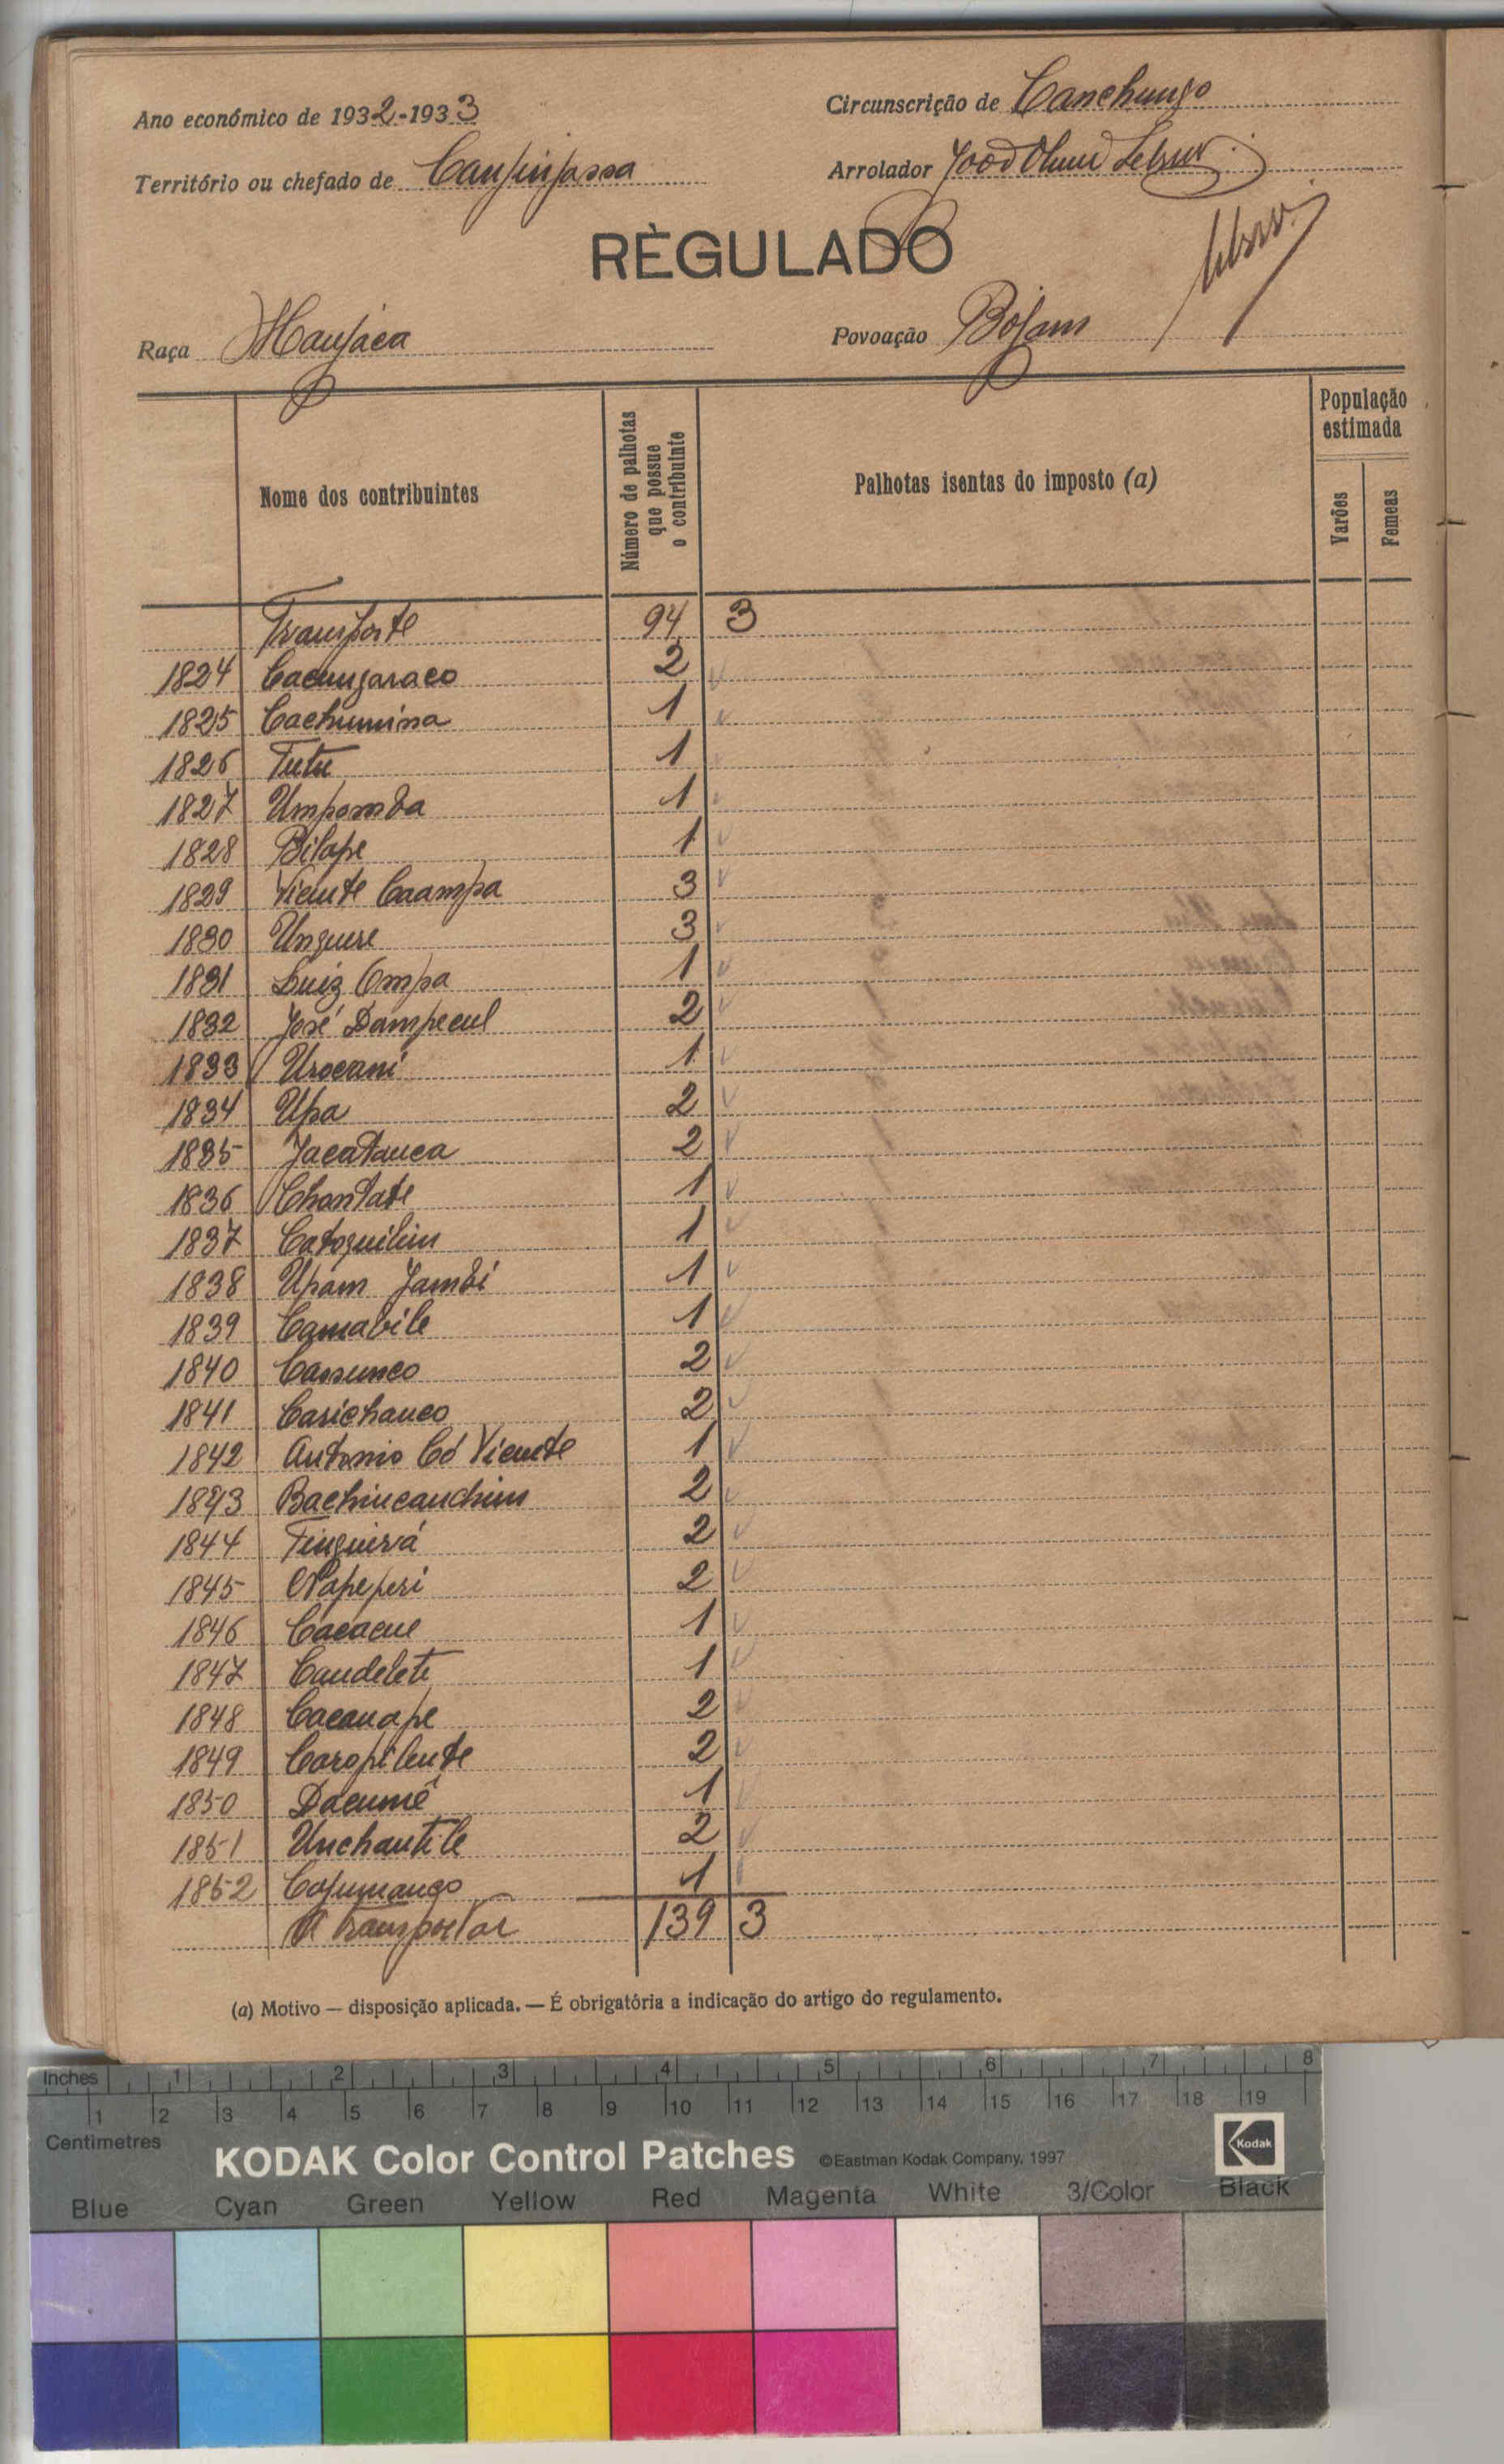 Ano económico de 1932-1933
Circunscrição de Canchungo
Território ou chefado de Canjinjassa
Arrolador João
RÈGULADO
Raça Manjaca
Povoação Bojam
Nome dos contribuintes
Número de palhotas que possue o contribuinte
Palhotas isentas do imposto (a)
População estimada
Varões
Femeas
Transporte 94 3
1824 Cacungaraco 2
1825 Cachumina 1
1826 Tutu 1
1827 Umpomba 1
1828 Bilape 1
1829 Vicente Caampa 3
1830 Unguere 3
1831 Luiz Ompa 1
1832 José Dampecul 2
1833 Urocani 1
1834 Upa 2
1835 Jacatauca 2
1836 Chontate 1
1837 Catoquilim 1
1838 Upam Jambi 1
1839 Camabile 1
1840 Cassunco 2
1841 Carichauco 2
1842 Antonio Có Vicente 1
1843 Bachincauchim 2
1844 Tinguirá 2
1845 Napeperi 2
1846 Cacacue 1
1847 Caudelete 1
1848 Cacauape 2
1849 Caropilente 2
1850 Dacumê 1
1851 Unchantile 2
1852 Cojumango 1
A transportar 139 3
(a) Motivo — disposição aplicada. — É obrigatória a indicação do artigo do regulamento.
Inches 1 2 3 4 5 6 7 8
1 2 3 4 5 6 7 8 9 10 11 12 13 14 15 16 17 18 19
Centimetres
KODAK Color Control Patches ©Eastman Kodak Company, 1997 Kodak
Blue Cyan Green Yellow Red Magenta White 3/Color Black